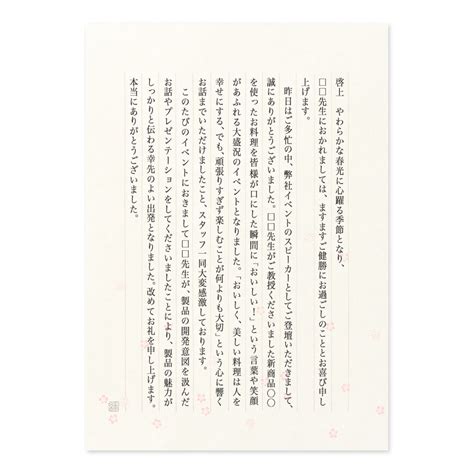 啓上　やわらかな春光に心躍る季節となり、
□□先生におかれましては、ますますご健勝にお過ごしのこととお喜び申し
上げます。
昨日はご多忙の中、弊社イベントのスピーカーとしてご登壇いただきまして、
誠にありがとうございました。□□先生がご教授くださいました新商品〇〇
を使ったお料理を皆様が口にした瞬間に「おいしい！」という言葉や笑顔
があふれる大盛況のイベントとなりました。「おいしく、美しい料理は人を
幸せにする、でも、頑張りすぎず楽しむことが何よりも大切」という心に響く
お話までいただけましたこと、スタッフ一同大変感激しております。
このたびのイベントにおきまして□□先生が、製品の開発意図を汲んだ
お話やプレゼンテーションをしてくださいましたことにより、製品の魅力が
しっかりと伝わる幸先のよい出発となりました。改めてお礼を申し上げます。
本当にありがとうございました。